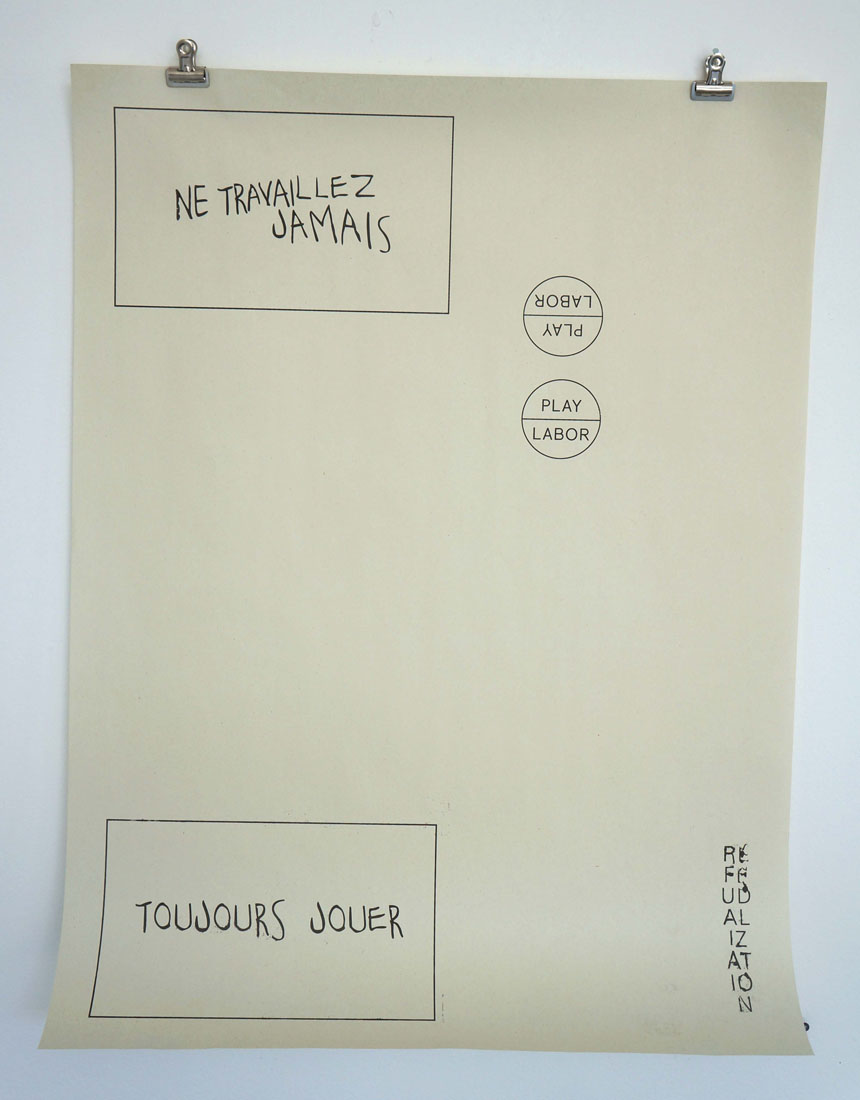 NE TRAVAILLEZ
JAMAIS
LABOR
PLAY
PLAY
LABOR
TOUJOURS JOUER
RE
FE
UD
AL
IZ
AT
IO
N